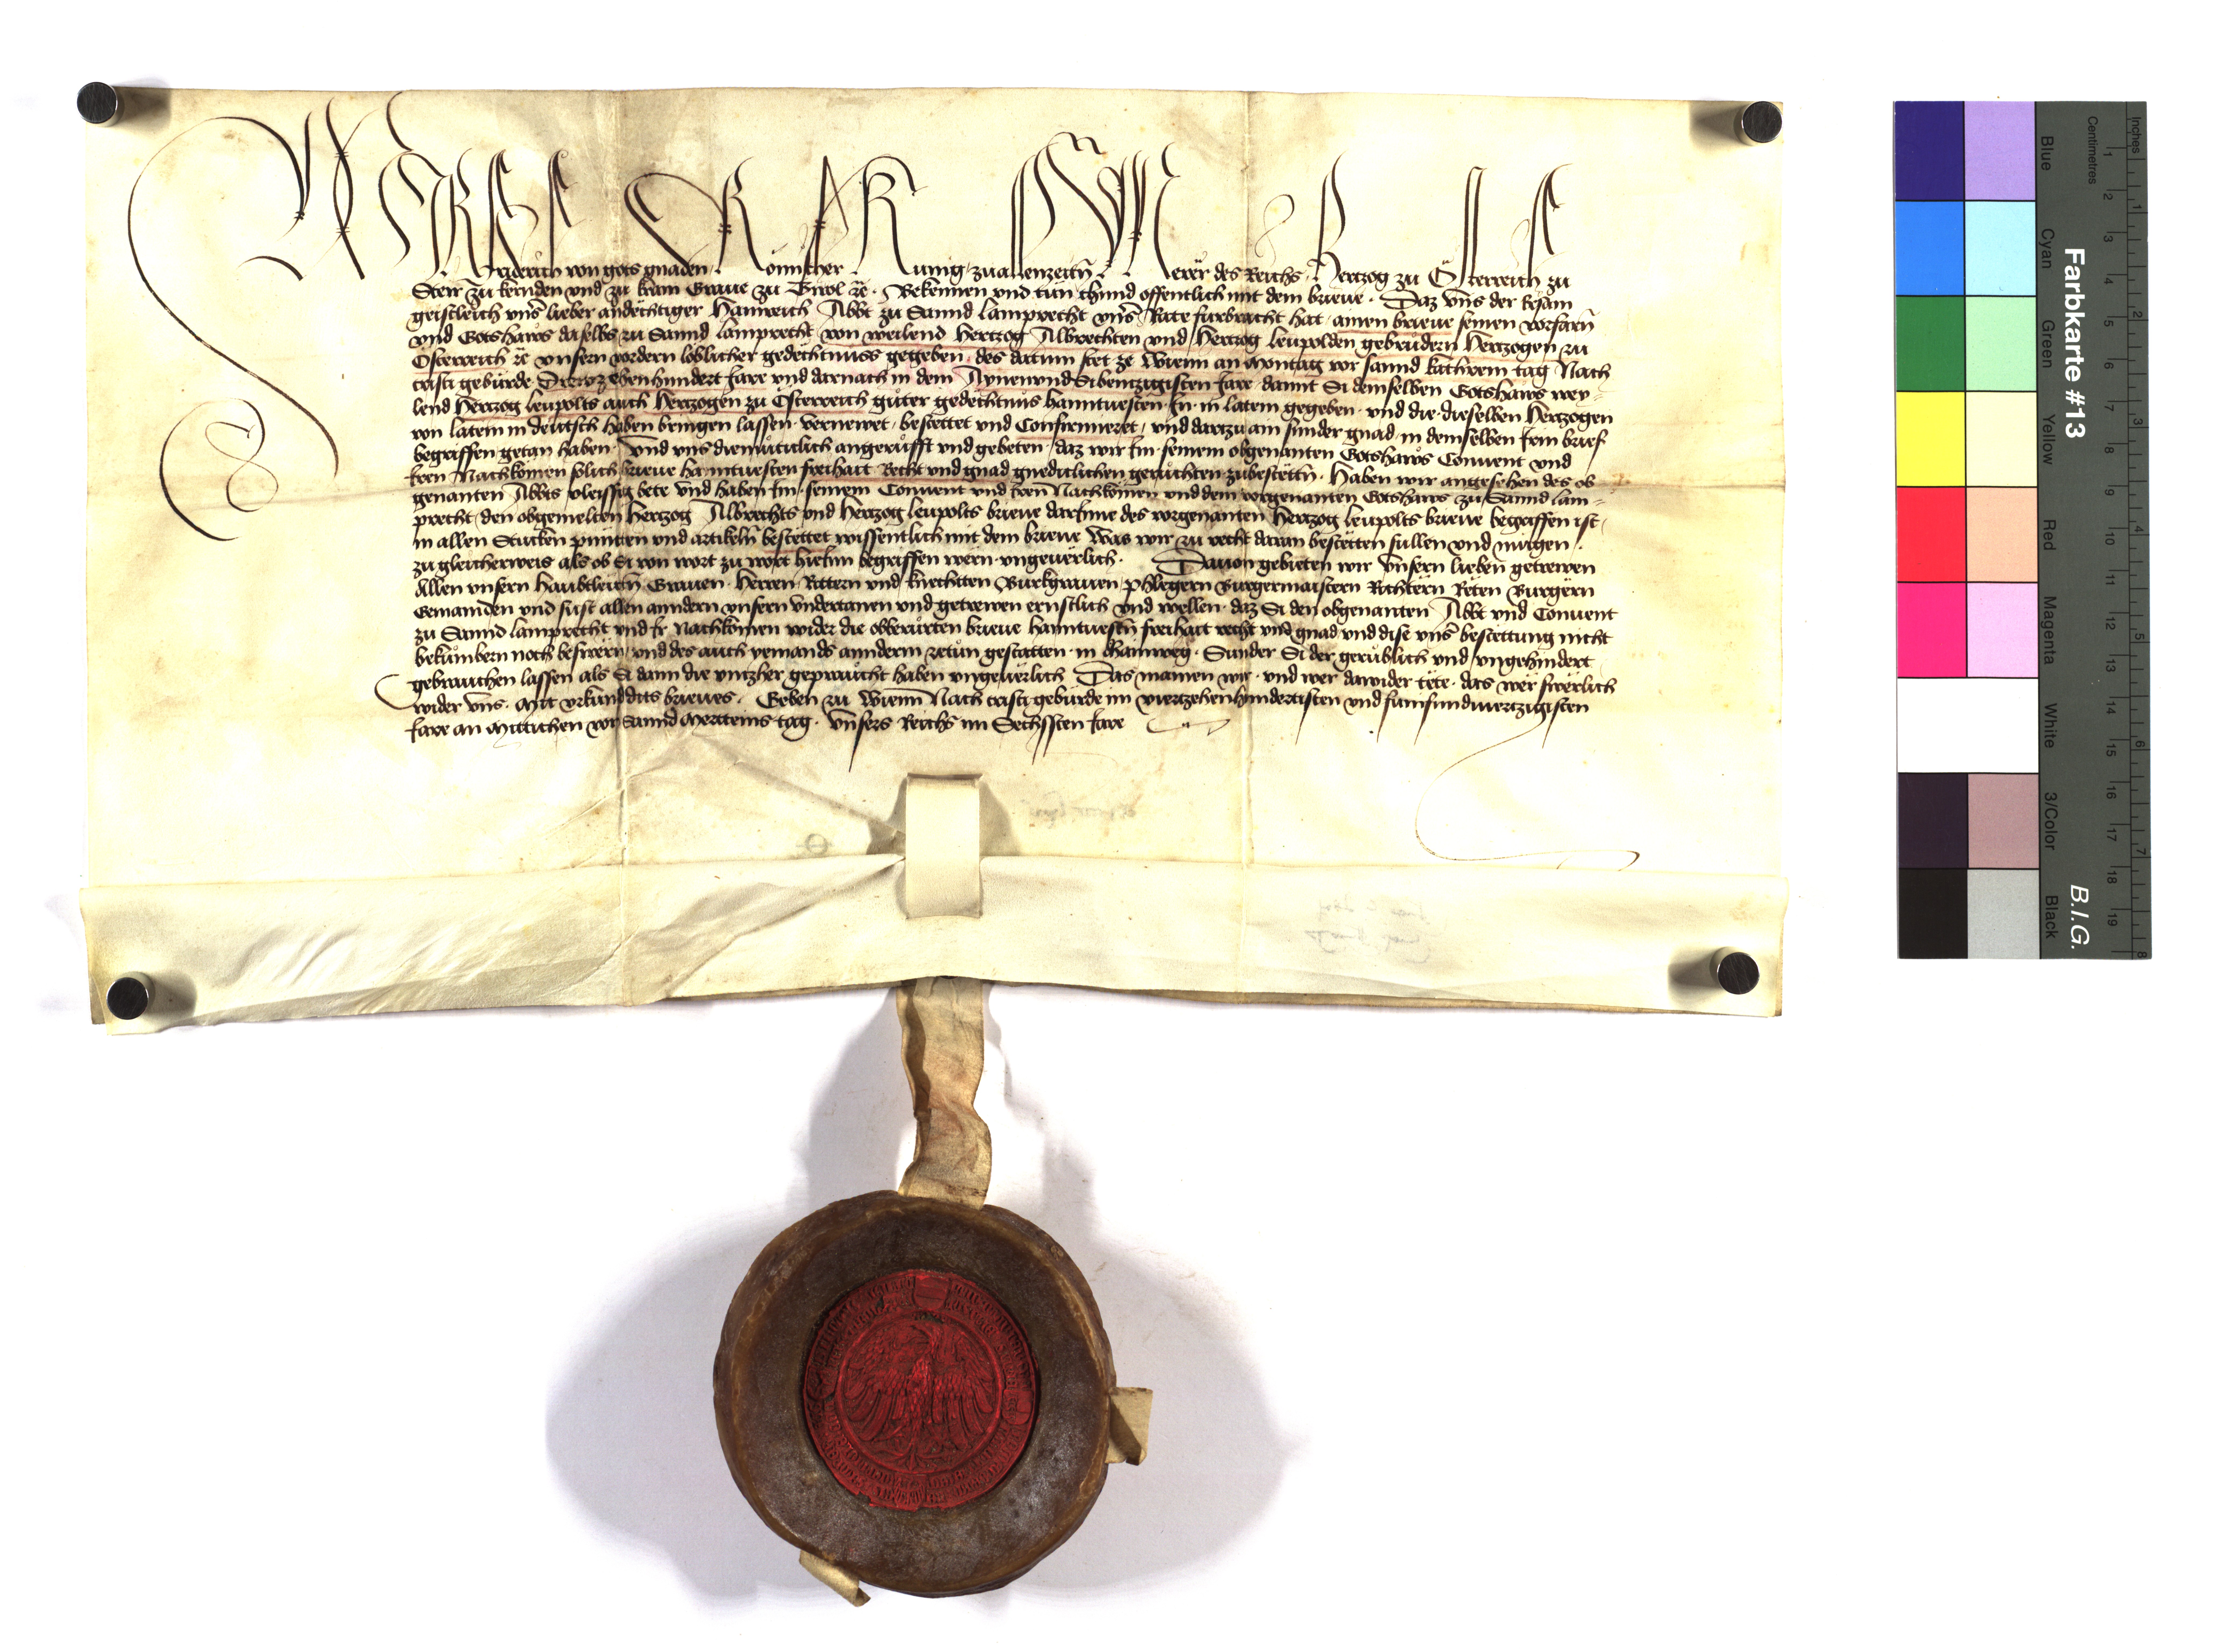 Wir Fridreich von gots gnaden Römischer Kunig zuallenzeitn Merer des Reichs Hertzog zu Österreich zu
Steir zu kernden vnd zu krain Graue zu Tirol etc. Bekennen vnd tun chund offentlich mit dem brieue. Daz vns der Ersam
geistleich vnser lieber andechtiger Hainreich Abbt zu Sannd lamprecht vnsr Rate furbracht hat ainen brieue seinen vorfarn
vnd Gotshaws daselbs zu Sannd lamprecht von weilend Hertzog Albrechten vnd Hertzog leupolden gebrüdern Hertzogen zu
Österreich etc vnsern vordern löblicher gedechtnuss gegeben des datum stet ze Wienn an Montag vor sannd kathrein tag Nach
cristi gebürde Drewzehenhundert Jare vnd darnach in dem Aynenvnd Sibentzigisten Jare damit Si demselben Gotshaws wey-
lend Hertzog leupolts auch Hertzogen zu Österreich güter gedechtnüs hanntuesten In in latein gegeben vnd die dieselben Hertzogen
von latein in deutsch haben bringen lassen vernewet bestettet vnd Confirmieret vnd dartzu ain sunder gnad in demselben Irm brief
begriffen getan haben Vnd vns diemuticlich angerufft vnd gebeten daz wir Im seinem obgenanten Gotshaws Conuent vnd
Iren Nachkomen solich brieue hanntuesten freihait Recht vnd gnad gnediclichen geruchten zubestettn. Haben wir angesehen des ob
genanten Abbts vleissig bete vnd haben Im seinem Conuent vnd Iren Nachkomen vnd dem vorgenanten Gotshaws zu Sannd lam-
precht den obgemelten Hertzog Albrechts vnd Hertzog leupolts brieue darInne des vorgenanten Hertzog leupolts brieue begriffen ist
in allen Stucken püntten vnd artikeln bestettet wissentlich mit dem brieue Was wir zu recht daran bestetten sullen vnd mugen
zu gleicherweis als ob Si von wort zu wort hieInn begriffen wern vngeuerlich. Dauon gebieten wir vnsern lieben getrewen
Allen vnsern haubtleutn Grauen Herren Rittern vnd knechtten Burkgrauen phlegern Burgermaistern Richtern Reten Burgern
Gemainden vnd sust allen anndern vnsern vndertanen vnd getrewen ernstlich vnd wellen daz Si den obgenanten Abbt vnd Conuent
zu Sannd lamprecht vnd Ir Nachkomen wider die obberurten brieue hanntuestn freihait recht vnd gnad vnd dise vnsr bestettung nicht
bekumbern noch beswern vnd des auch yemands annderm zetun gestatten in dhainweg Sunder Si der gerublich vnd vngehindert
gebrauchen lassen als Si dann die vntzher gepraucht haben vngeuerlich Das mainen wir vnd wer dawider tete das wer swerlich
wider vns. Mit vrkund dits brieues. Geben zu Wienn Nach cristi gebürde im viertzehenhundertisten vnd fumfundviertzigisten
Jare an Mittichen vor Sannd Merteins tag. Vnsers Reichs im Sechssten Jare
Farbkarte #13
B.I.G.
Inches
Centimetres
Blue
Cyan
Green
Yellow
Red
Magenta
White
3/Color
Black
1 2 3 4 5 6 7 8 9 10 11 12 13 14 15 16 17 18 19
1 2 3 4 5 6 7 8